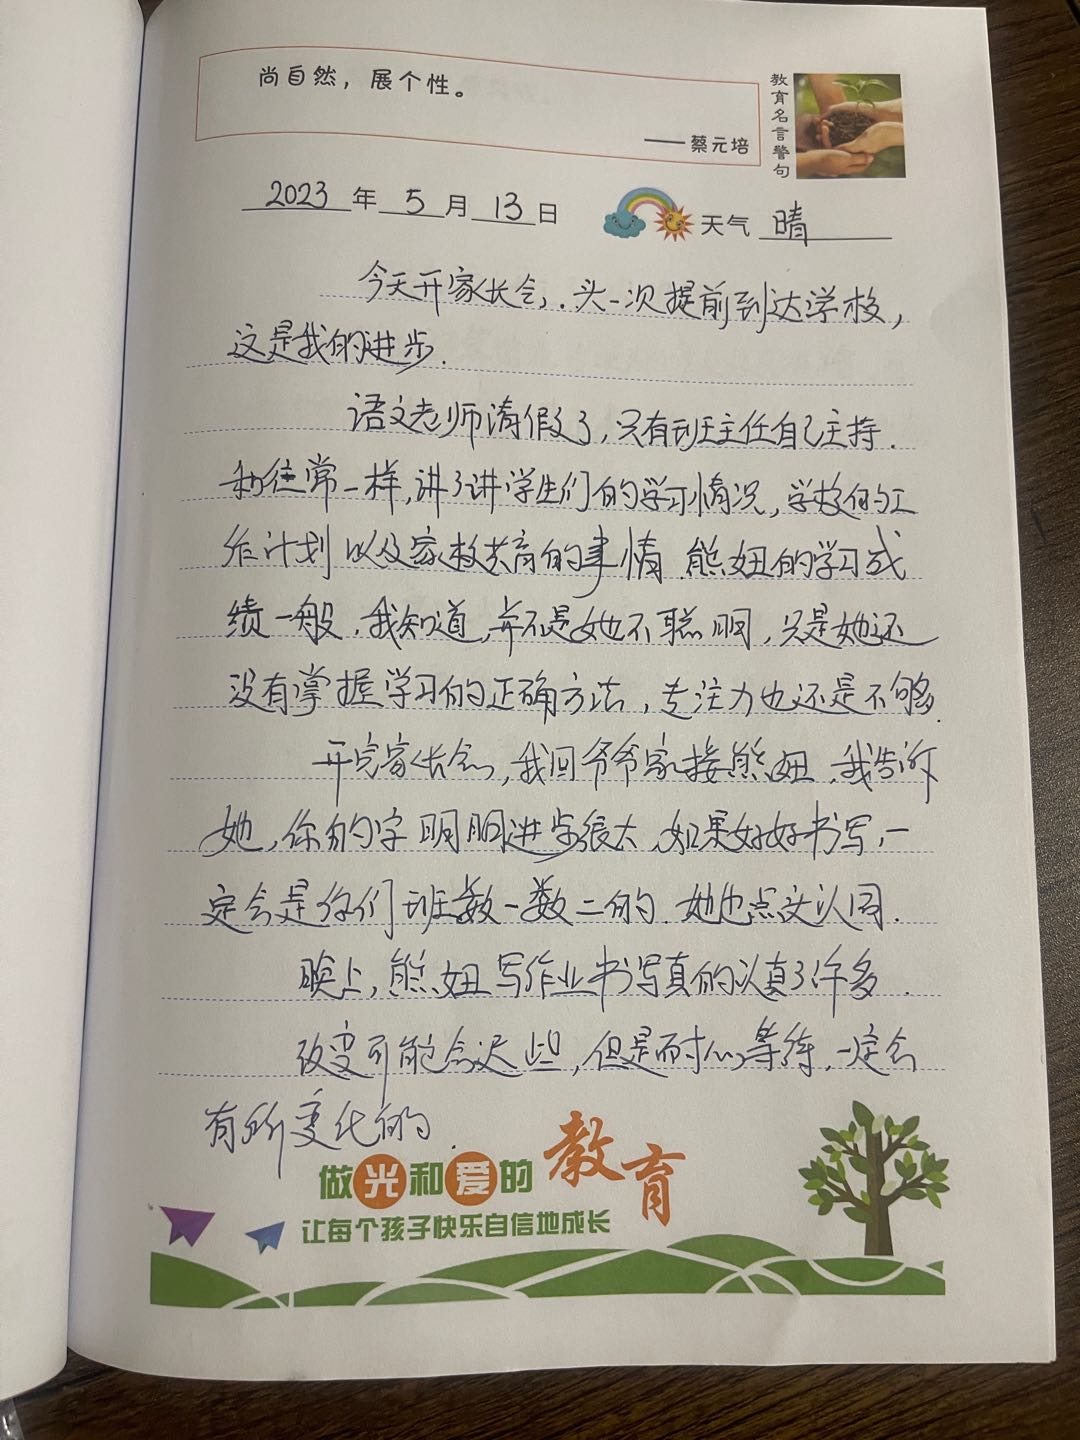 尚自然，展个性。
——蔡元培
教育名言警句
2023年5月13日
天气 晴
今天开家长会，头一次提前到达学校，
这是我的进步.
语文老师请假了，只有班主任自己主持.
和往常一样,讲了讲学生们的学习情况，学校的工
作计划以及家校共育的事情.熊妞的学习成
绩一般.我知道,并不是她不聪明，只是她还
没有掌握学习的正确方法，专注力也还是不够.
开完家长会，我回爷爷家接熊妞.我告诉
她，你的字明明进步很大.如果好好书写，一
定会是你们班数一数二的.她也点头认同.
晚上,熊妞写作业书写真的认真了许多.
改变可能会迟些，但是耐心等待，一定会
有所变化的.
做光和爱的教育
让每个孩子快乐自信地成长